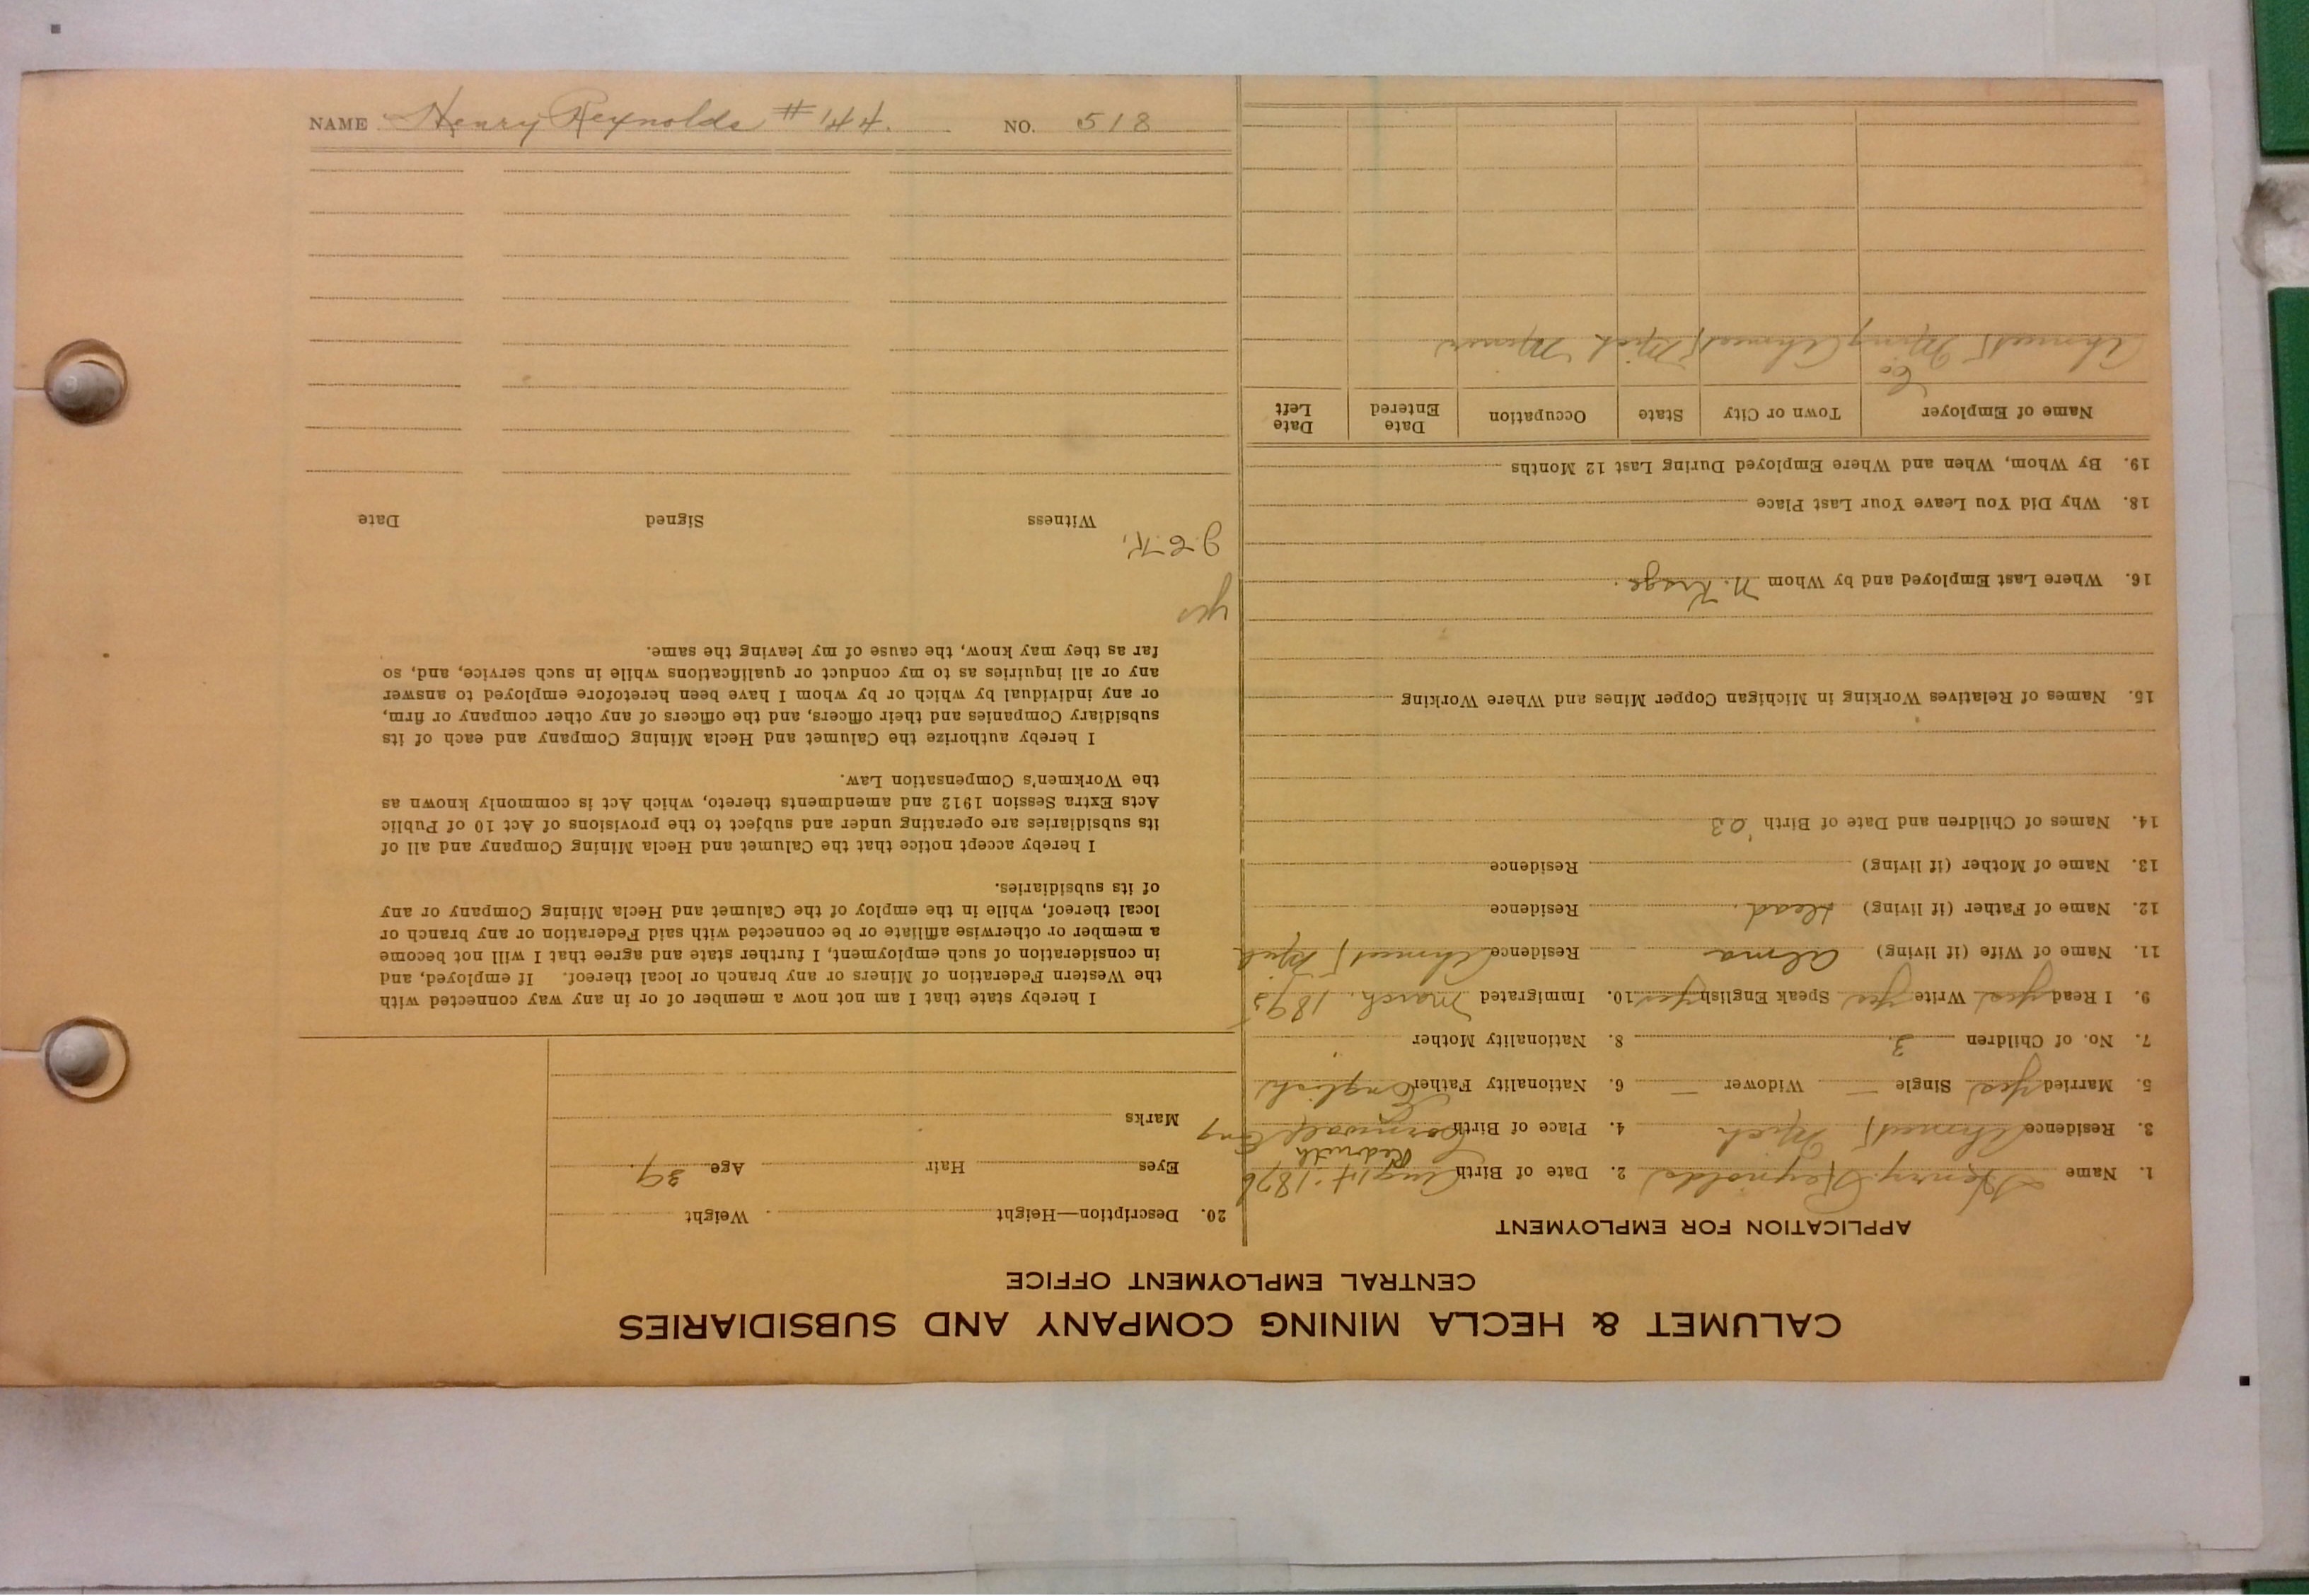 CALUMET & HECLA MINING COMPANY AND SUBSIDIARIES
CENTRAL EMPLOYMENT OFFICE
APPLICATION FOR EMPLOYMENT
1. Name Henry Reynolds 2. Date of Birth Aug 1st 1876
Redruth
3. Residence Ahmeek Mich 4. Place of Birth Cornwall Eng
5. Married Yes Single — Widower — 6. Nationality Father English
7. No. of Children 3. 8. Nationality Mother
9. I Read yes Write Yes Speak English yes 10. Immigrated March. 1895
11. Name of Wife (if living) Alma Residence Ahmeek Mich
12. Name of Father (if living) dead. Residence
13. Name of Mother (if living) Residence
14. Names of Children and Date of Birth
15. Names of Relatives Working in Michigan Copper Mines and Where Working
16. Where Last Employed and by Whom
18. Why Did You Leave Your Last Place
19. By Whom, When and Where Employed During Last 12 Months
Name of Employer Town or City State Occupation Date Entered Date Left
Co
Ahmeek Ming Ahmeek Mich Miner
20. Description—Height Weight
Eyes Hair Age 39.
Marks
I hereby state that I am not now a member of or in any way connected with
the Western Federation of Miners or any branch or local thereof. If employed, and
in consideration of such employment, I further state and agree that I will not become
a member or otherwise affiliate or be connected with said Federation or any branch or
local thereof, while in the employ of the Calumet and Hecla Mining Company or any
of its subsidiaries.
I hereby accept notice that the Calumet and Hecla Mining Company and all of
its subsidiaries are operating under and subject to the provisions of Act 10 of Public
Acts Extra Session 1912 and amendments thereto, which Act is commonly known as
the Workmen's Compensation Law.
I hereby authorize the Calumet and Hecla Mining Company and each of its
subsidiary Companies and their officers, and the officers of any other company or firm,
or any individual by which or by whom I have been heretofore employed to answer
any or all inquiries as to my conduct or qualifications while in such service, and, so
far as they may know, the cause of my leaving the same.
yes
Witness Signed Date
NAME Henry Reynolds #144. NO. 518